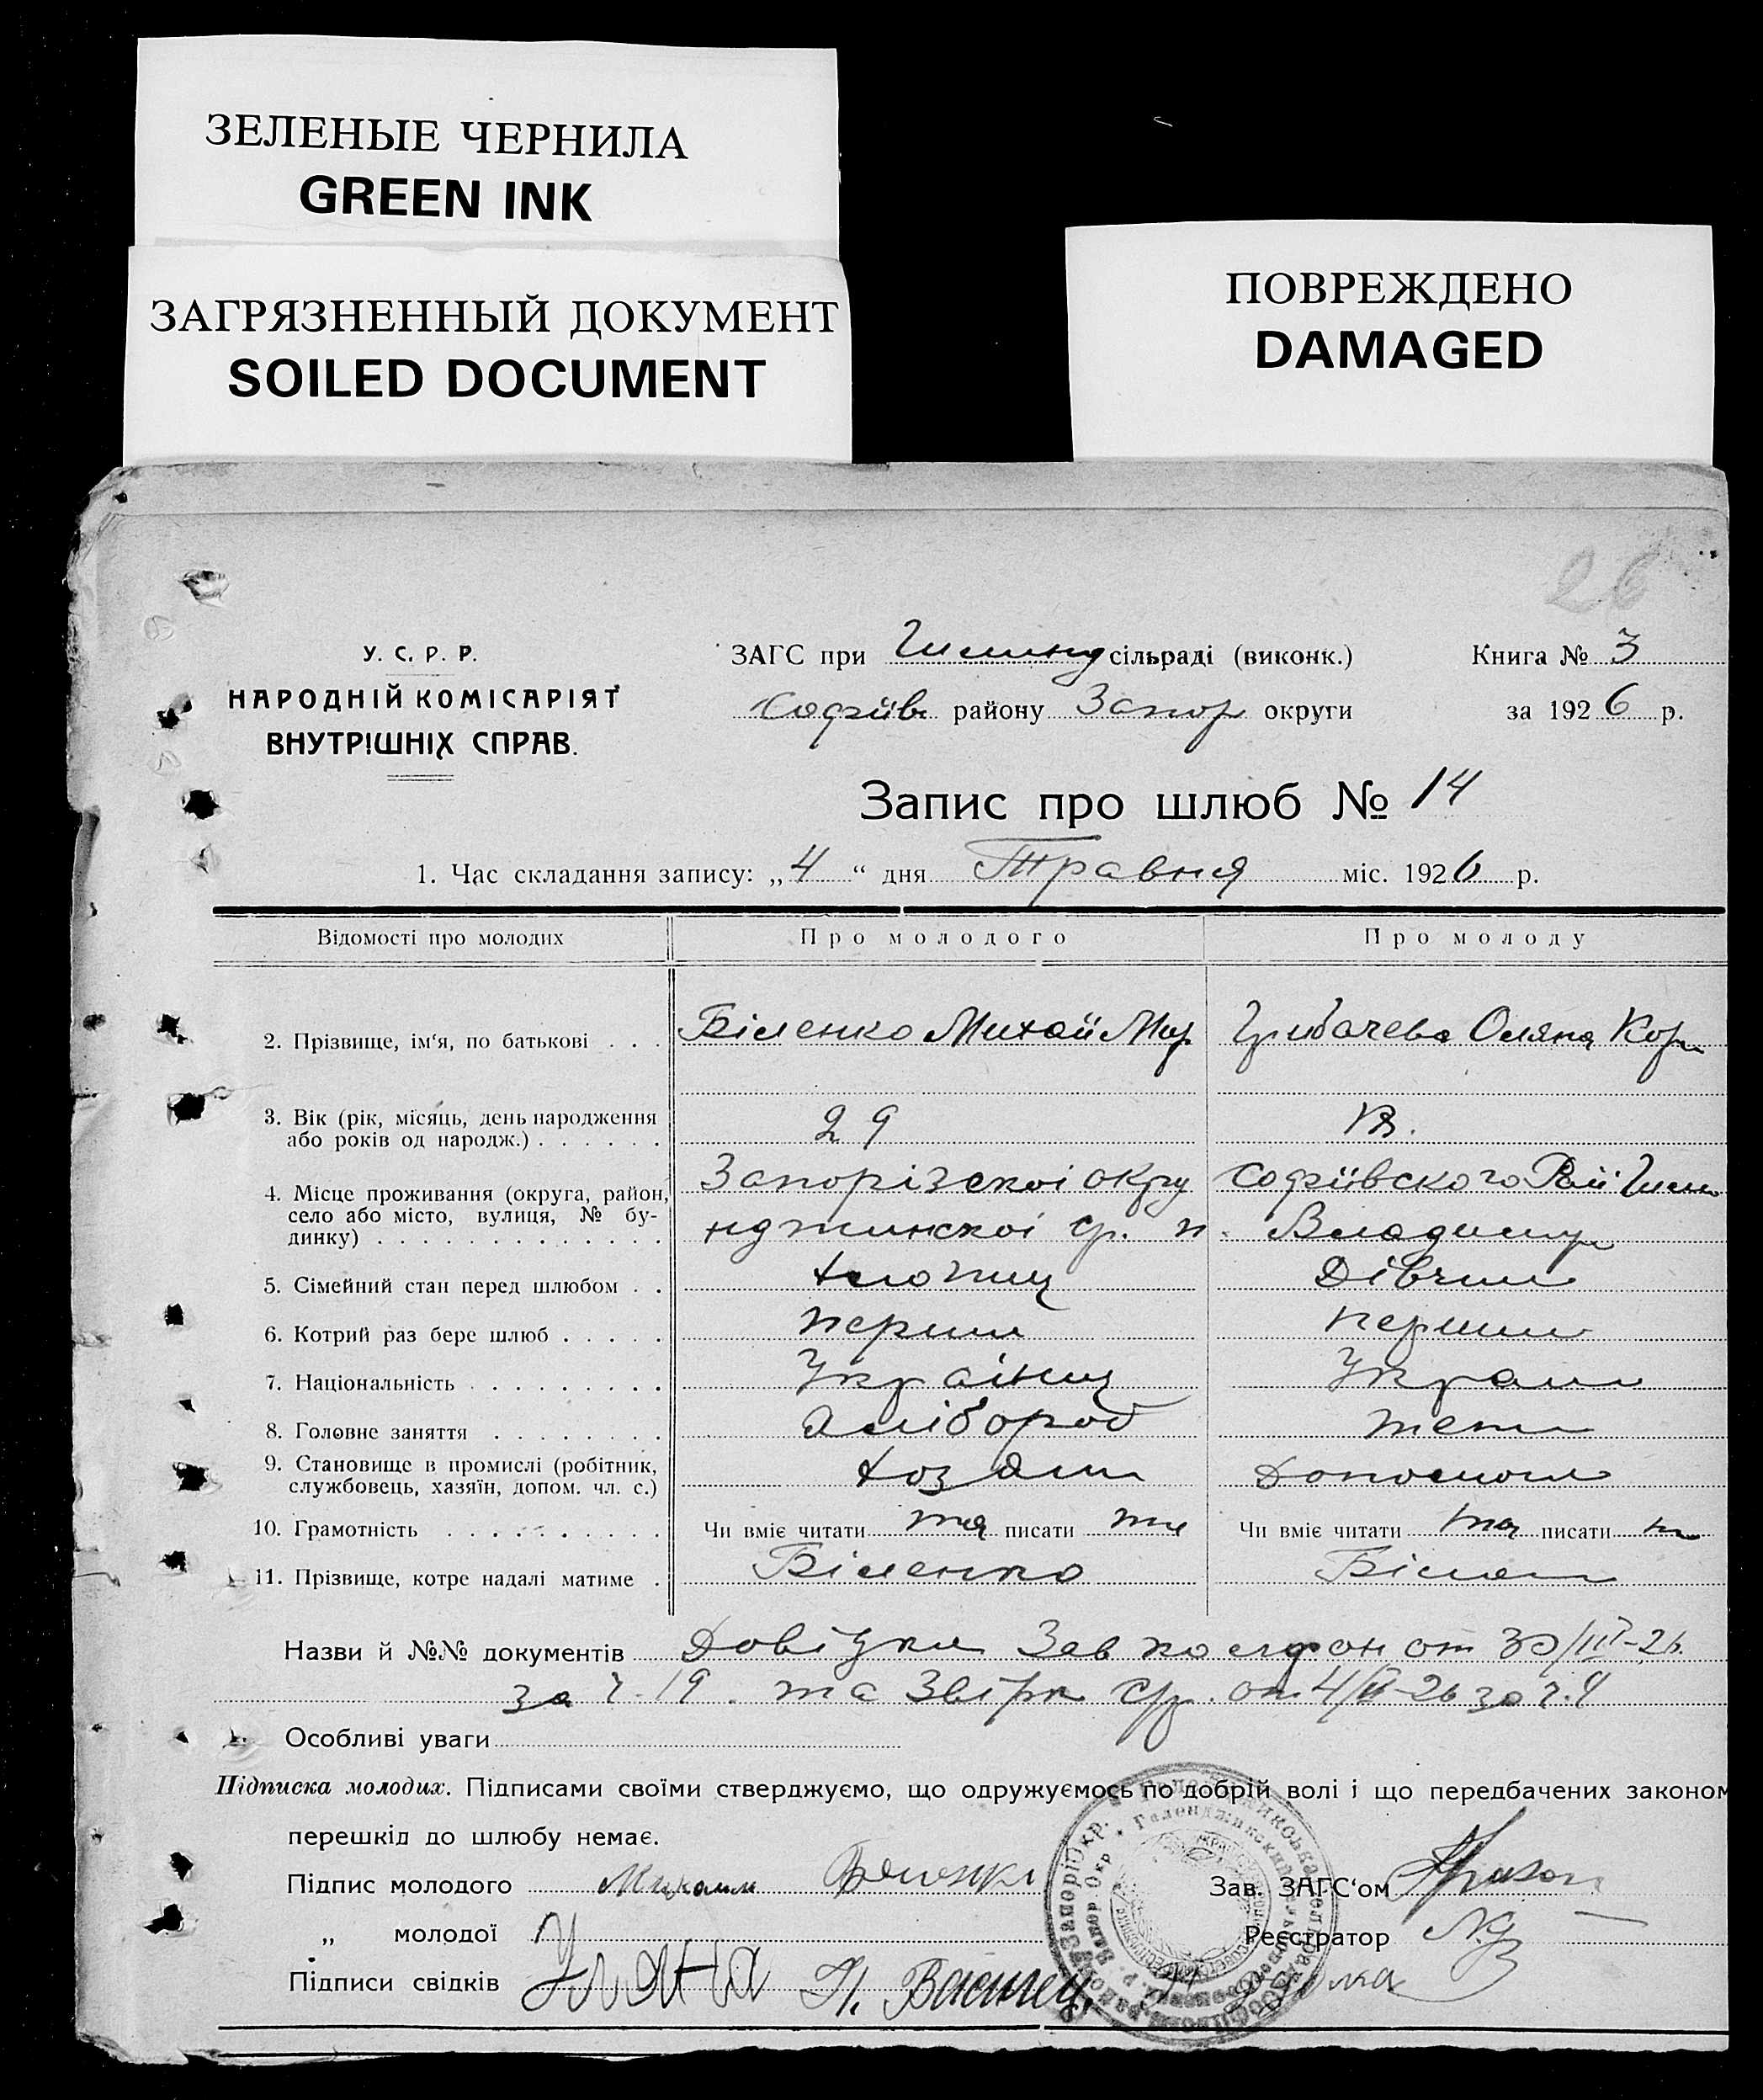 ЗЕЛЕНЫЕ ЧЕРНИЛА
GREEN INK
ЗАГРЯЗНЕННЫЙ ДОКУМЕНТ
SOILED DOCUMENT
ПОВРЕЖДЕНО
DAMAGED
26
У. С. Р. Р.
НАРОДНІЙ КОМІСАРІЯТ
ВНУТРІШНІХ СПРАВ.
ЗАГС при сільраді (виконк.)
Софіїв району Запор округи
Книга № 3
за 1926 р.
Запис про шлюб № 14
1. Час складання запису: „4“ дня Травня міс. 1926 р.
Відомості про молодих Про молодого Про молоду
2. Прізвище, ім'я, по батькові . . . Біленко Михай Мар Грибачева Оляна Кор
3. Вік (рік, місяць, день народження
або років од народж.) . . . . . . 29 18.
4. Місце проживання (округа, район, Запорізскоі окру Софіївского Рай
село або місто, вулиця, № бу-
динку) . . . . . . . . . . . . . нджинскоі ср. Владимир
5. Сімейний стан перед шлюбом . . хлопец Дівчин
6. Котрий раз бере шлюб . . . . . перши перши
7. Національність . . . . . . . . . Українец Украин
8. Головне заняття . . . . . . . . хлібороб теж
9. Становище в промислі (робітник,
службовець, хазяїн, допом. чл. с.) хозяин
10. Грамотність . . . . . . . . . . Чи вміє читати так писати так Чи вміє читати так писати
11. Прізвище, котре надалі матиме . Біленко Білен
Назви й №№ документів Довідки от 30/III-26.
за ч. 19. та ср. от 4/V-26 за ч. 4
Особливі уваги
Підписка молодих. Підписами своїми стверджуємо, що одружуємось по добрій волі і що передбачених законом
перешкід до шлюбу немає.
Підпис молодого Михаил
Зав. ЗАГС'ом
„ молодої
Реєстратор
Підписи свідків Уляна П.